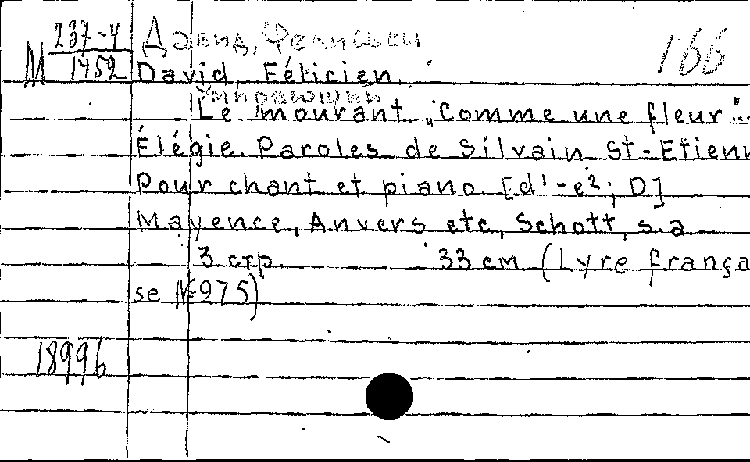 М 237-4
1452
Давид, Фелисьен
166
David Félicien.
Умирающий
Le mourant „Comme une fleur"..
Élégie. Paroles de Silvain St-Etienn
Pour chant et piano [d¹-e²; D]
Mayence, Anvers etc, Schott, s.a
3 стр. 33 cm (Lyre frança
se № 975)
18996